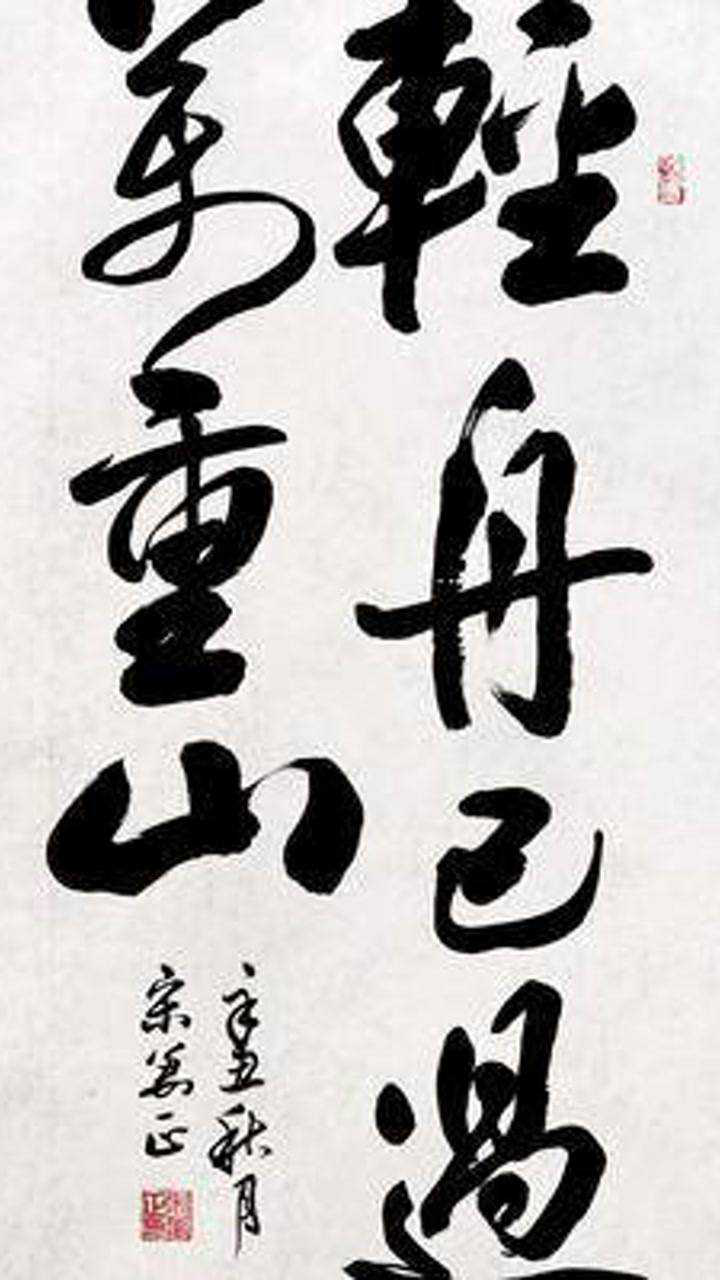 輕舟已過
萬重山
辛丑秋月
宋義正